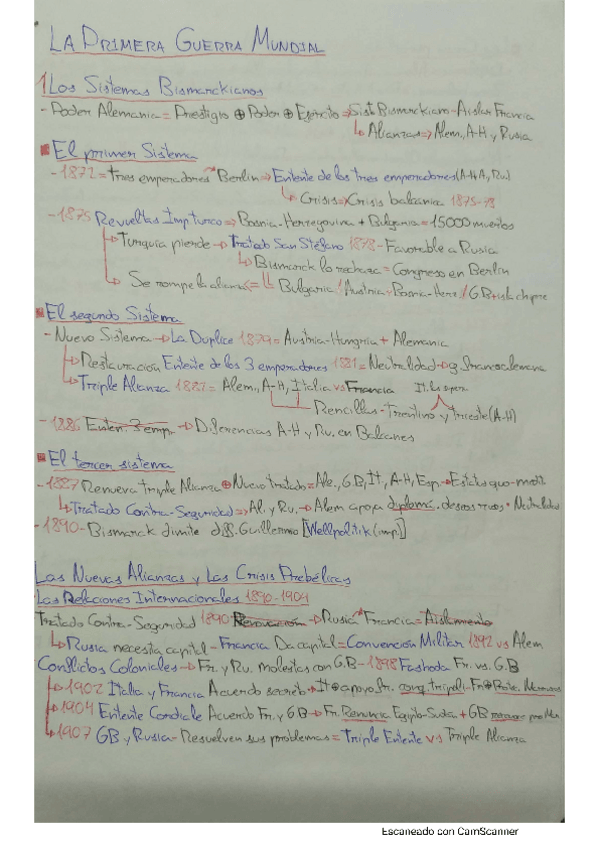 LA PRIMERA GUERRA MUNDIAL
1. Los Sistemas Bismarckianos
- Poder Alemania = Prestigio ⊕ Poder ⊕ Ejército ⇒ Sist. Bismarckiano - Aislar Francia
↳ Alianzas ⇒ Alem., A-H y Rusia
El primer Sistema
- 1872 = tres emperadores Berlin ⇒ Entente de los tres emperadores (A-H, A, Ru.)
↳ Crisis ⇒ Crisis balcania 1875-78
- 1875 Revueltas Imp turco ⇒ Bosnia-Herzegovina + Bulgaria = 15000 muertos
↳ Turquia pierde → Tratado San Stéfano 1878 - Favorable a Rusia
↳ Bismarck lo rechaza = Congreso en Berlin
↳ Se rompe la alianza = Bulgaria / Austria → Bosnia-Herz / GB → isla chipre
El segundo Sistema
- Nuevo Sistema → La Duplice 1879 = Austria-Hungria + Alemania
↳ Restauracion Entente de los 3 emperadores 1881 = Neutralidad → g. francoalemana
↳ Triple Alianza 1882 = Alem., A-H, Italia vs Francia
Rencillas - Trentino y trieste (A-H)
- 1886 Enten. 3 emp. → Diferencias A-H y Ru. en Balcanes
El tercer sistema
- 1887 Renueva triple Alianza ⊕ Nuevo tratado = Ale., GB, It, A-H, Esp. → Estatus quo - medit.
↳ Tratado Contra-Seguridad ⇒ Al. y Ru. → Alem apoya diplomá. deseos rusos
- 1890 - Bismarck dimite Guillermo [Weltpolitik (imp.)]
Las Nuevas Alianzas y Las Crisis Prebélicas
Las Relaciones Internacionales 1890-1904
Tratado Contra-Seguridad 1890 Renovación → Rusia Francia = Aislamiento
↳ Rusia necesita capital - Francia Da capital = Convención Militar 1892 vs Alem
Conflictos Coloniales → Fr. y Ru. molestas con G.B - 1898 Fashoda Fr. vs. G.B
↳ 1902 Italia y Francia Acuerdo secreto → It ⊕ apoyo Fr. conq. tripoli - Fr ⊕ Marruecos
↳ 1904 Entente Cordiale Acuerdo Fr. y GB → Fr. Renuncia Egipto-Sudan + GB
↳ 1907 GB y Rusia - Resuelven sus problemas = Triple Entente vs Triple Alianza
Escaneado con CamScanner